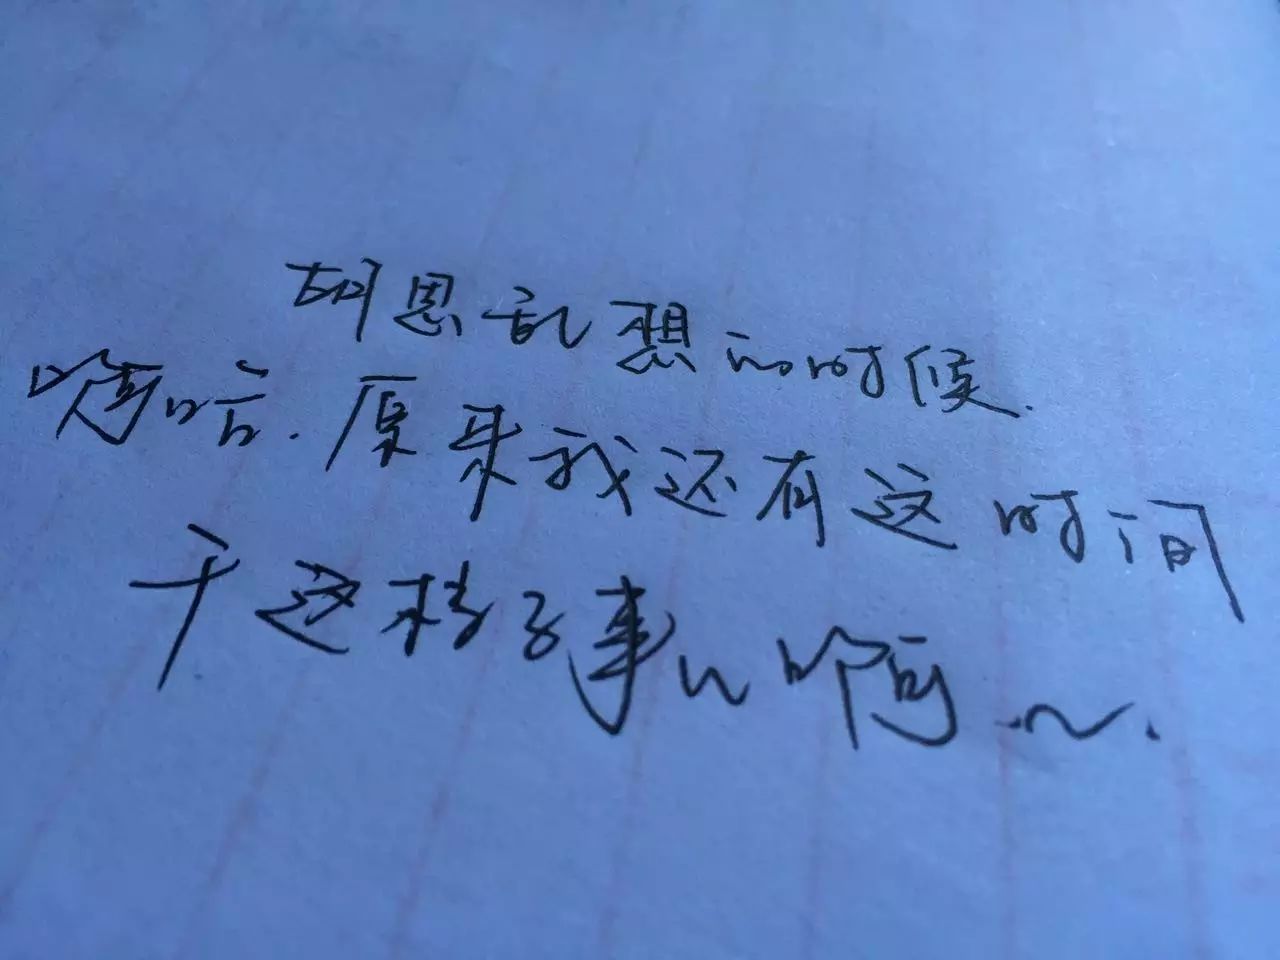 胡思乱想的时候.
哈哈.原来我还有这时间
干这样子事儿啊.~.